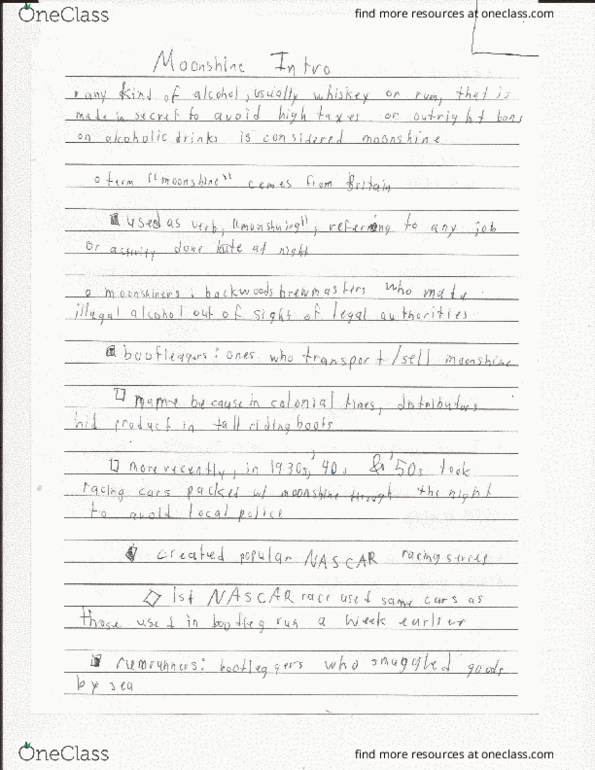 OneClass
find more resources at oneclass.com
Moonshine Intro
• any kind of alcohol, usually whiskey or rum, that is
made in secret to avoid high taxes or outright bans
on alcoholic drinks is considered moonshine
o term "moonshine" comes from Britain
used as verb, "moonshining", referring to any job
or activity done late at night
o moonshiners: backwoods brewmasters who made
illegal alcohol out of sight of legal authorities
bootleggers: ones who transport/sell moonshine
name because in colonial times, distributors
hid product in tall riding boots
more recently, in 1930s, '40s & '50s took
racing cars packed w/ moonshine through the night
to avoid local police
created popular NASCAR racing series
1st NASCAR race used same cars as
those used in bootleg run a week earlier
rumrunners: bootleggers who smuggled goods
by sea
OneClass
find more resources at oneclass.com